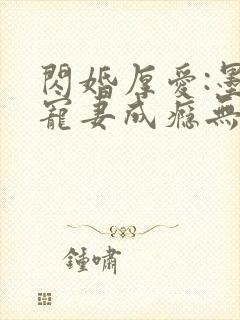 閃婚厚愛:墨
寵妻成癮無
鍾嘯